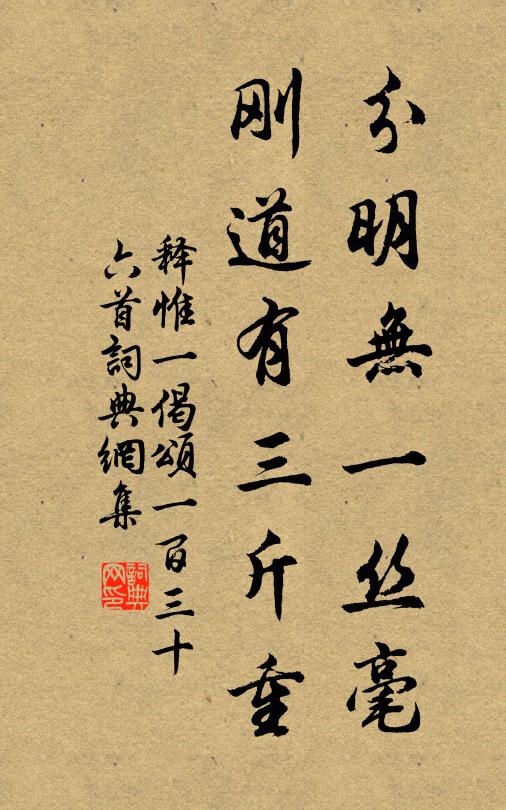 分明無一丝毫
刚道有三斤重
释惟一偈頌一百三十
六首詞典網集
詞典
网印